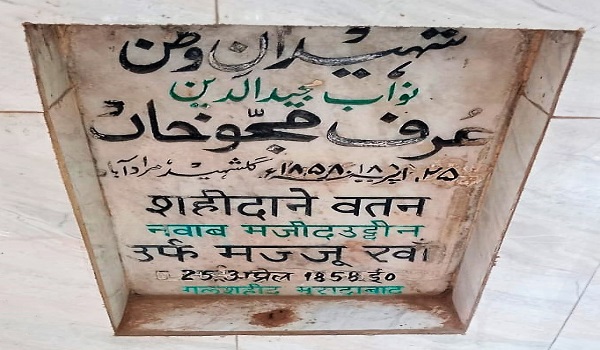 شہیدانِ وطن
نواب مجیدالدین
عُرف مجّوخاں
۲۵، اپریل ۱۸۵۸ء گلشہید مرادآباد
शहीदाने वतन
नवाब मजीदउद्दीन
उर्फ मज्जू खाँ
25 अप्रेल 1858 ई०
गलशहीद मुरादाबाद